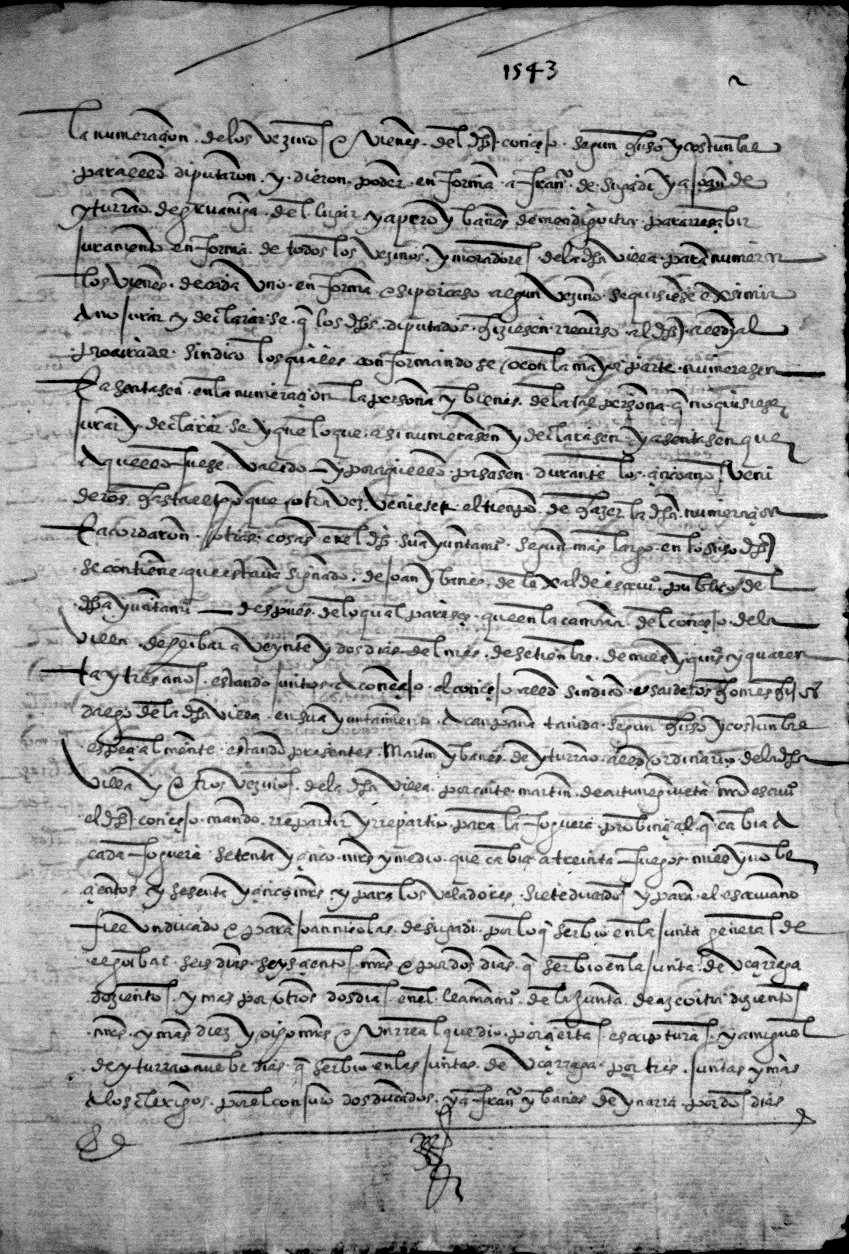 1543
la numeraçion de los vezinos e vienes del dho conçejo segun huso y costunbre
para ello diputaron y dieron poder en forma a Franco de Sigadi y a Joan de
Yturrao de gruamça del lugar y a Pero Ybañes de mendiguitia para rresçbir
juramento en forma de todos los vezinos y moradores de la dha villa para numerar
los vienes de cada vno en forma e si por caso algun vezino se quisiese exsimir
a no jurar y declarar se q los dhos diputados hiziesen rrecurso al dho alld y al
procurador sindico los quales conformando se o con la mayor parte numerasen
E asentasen en la numeraçion la persona y bienes de la tal persona q no quisiese
jurar y declarar se y que lo que asi numerasen y declarasen y asentasen que
aquello fuese valido y por aquello pasasen durante los años veni
deros hasta el tpo que otra vez veniese el tienpo de hazer la dha numeraçion
E acordaron otras cosas en el dho su ayuntamio segun mas largo en lo suso dho
se contiene que estava signado de Joan Ybañes de la Xalde escriuo publico del
dho ayuntamio despues de lo qual pareçe que en la camara del conçejo de la
villa de Heibar a veynte y dos dias del mes de setienbre de mill y quis y quaren
ta y tres años estando juntos a conçejo el conçejo alld sindico
de la dha villa en su ayuntamiento a canpana tañida segun huso y costunbre
espeçialmente estando presentes Martin Ybañes de Yturrao alld hordinario de la dha
villa y otros vezinos de la dha villa por ante Martin de escriuo
el dho conçejo mando rrepartir y rrepartio para la foguera probinçial q cabia a
cada foguera setenta y çinco mrs y medio que cabia a treinta fuegos mill y nobe
çientos y sesenta y çinco mrs y para los veladores siete ducados y para el escriuano
fiel vn ducado e para Joan nicolas de sigadi por lo q serbio en la junta general de
elgoibar seis dias seysçientos mrs e por dos dias q serbio en la junta de vçarraga
dozientos y mas por otros dos dias en el llamamio de la junta de azcoitia dozientos
mrs y mas diez y ocho mrs e vn rreal que dio por çierta escriptura y a miguel
de Yturrao nuebe dias q serbio en las juntas de vçarraga por tres juntas y mas
a los clerigos por el conjuro dos ducados y a Franco Ybañes de Ynarra por dos dias